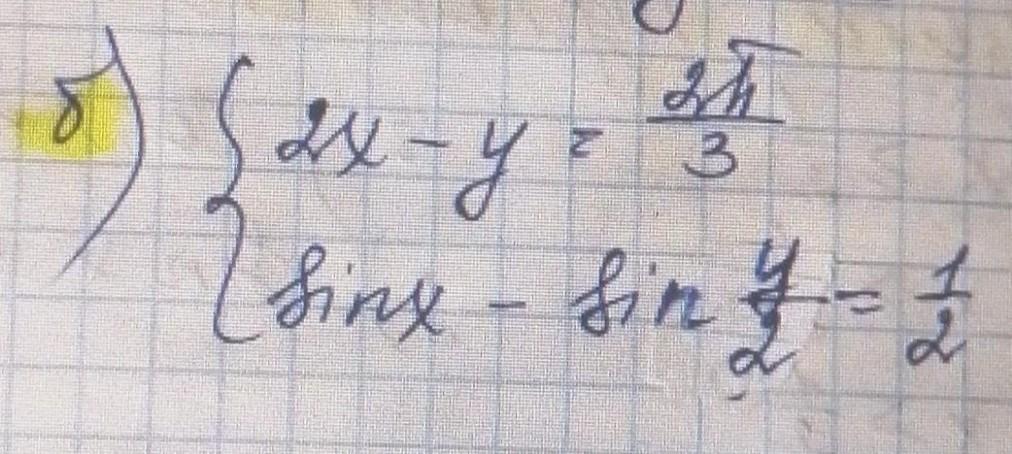 б) { 2x - y = 2π/3
sinx - sin y/2 = 1/2